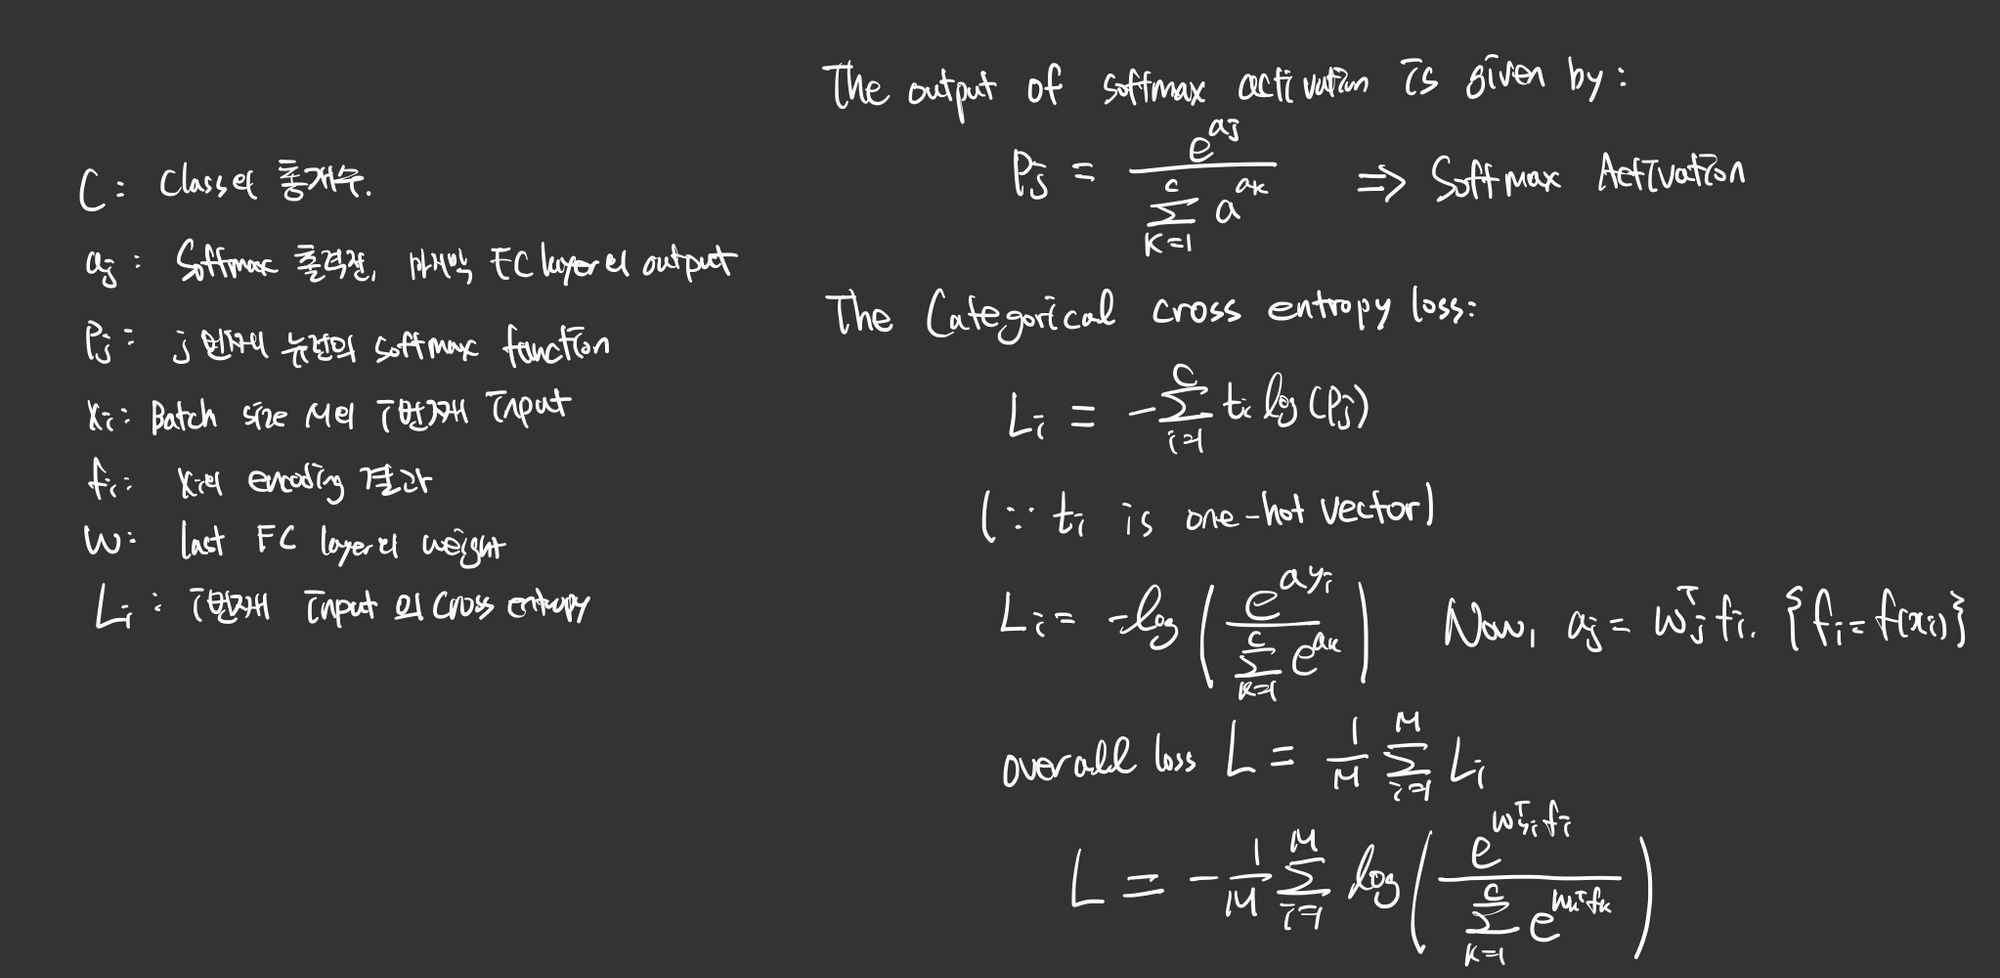 C: Class의 총개수.
aj: Softmax 출력전, 마지막 FC layer의 output
Pj: j 번째의 뉴런의 softmax function
xi: Batch size M의 i번째 Input
fi: xi의 encoding 결과
W: last FC layer의 weight
Li: i번째 Input 의 Cross entropy
The output of softmax activation is given by:
Pj = e^aj / Σ_{K=1}^{C} a^ak ⇒ Softmax Activation
The Categorical cross entropy loss:
Li = -Σ_{i=1}^{C} ti log(Pj)
(∵ ti is one-hot vector)
Li = -log( e^ayi / Σ_{k=1}^{C} e^ak ) Now, aj = Wj^T fi. {fi = f(xi)}
overall loss L = 1/M Σ_{i=1}^{M} Li
L = -1/M Σ_{i=1}^{M} log( e^{Wyi^T fi} / Σ_{k=1}^{C} e^{Wk^T fk} )